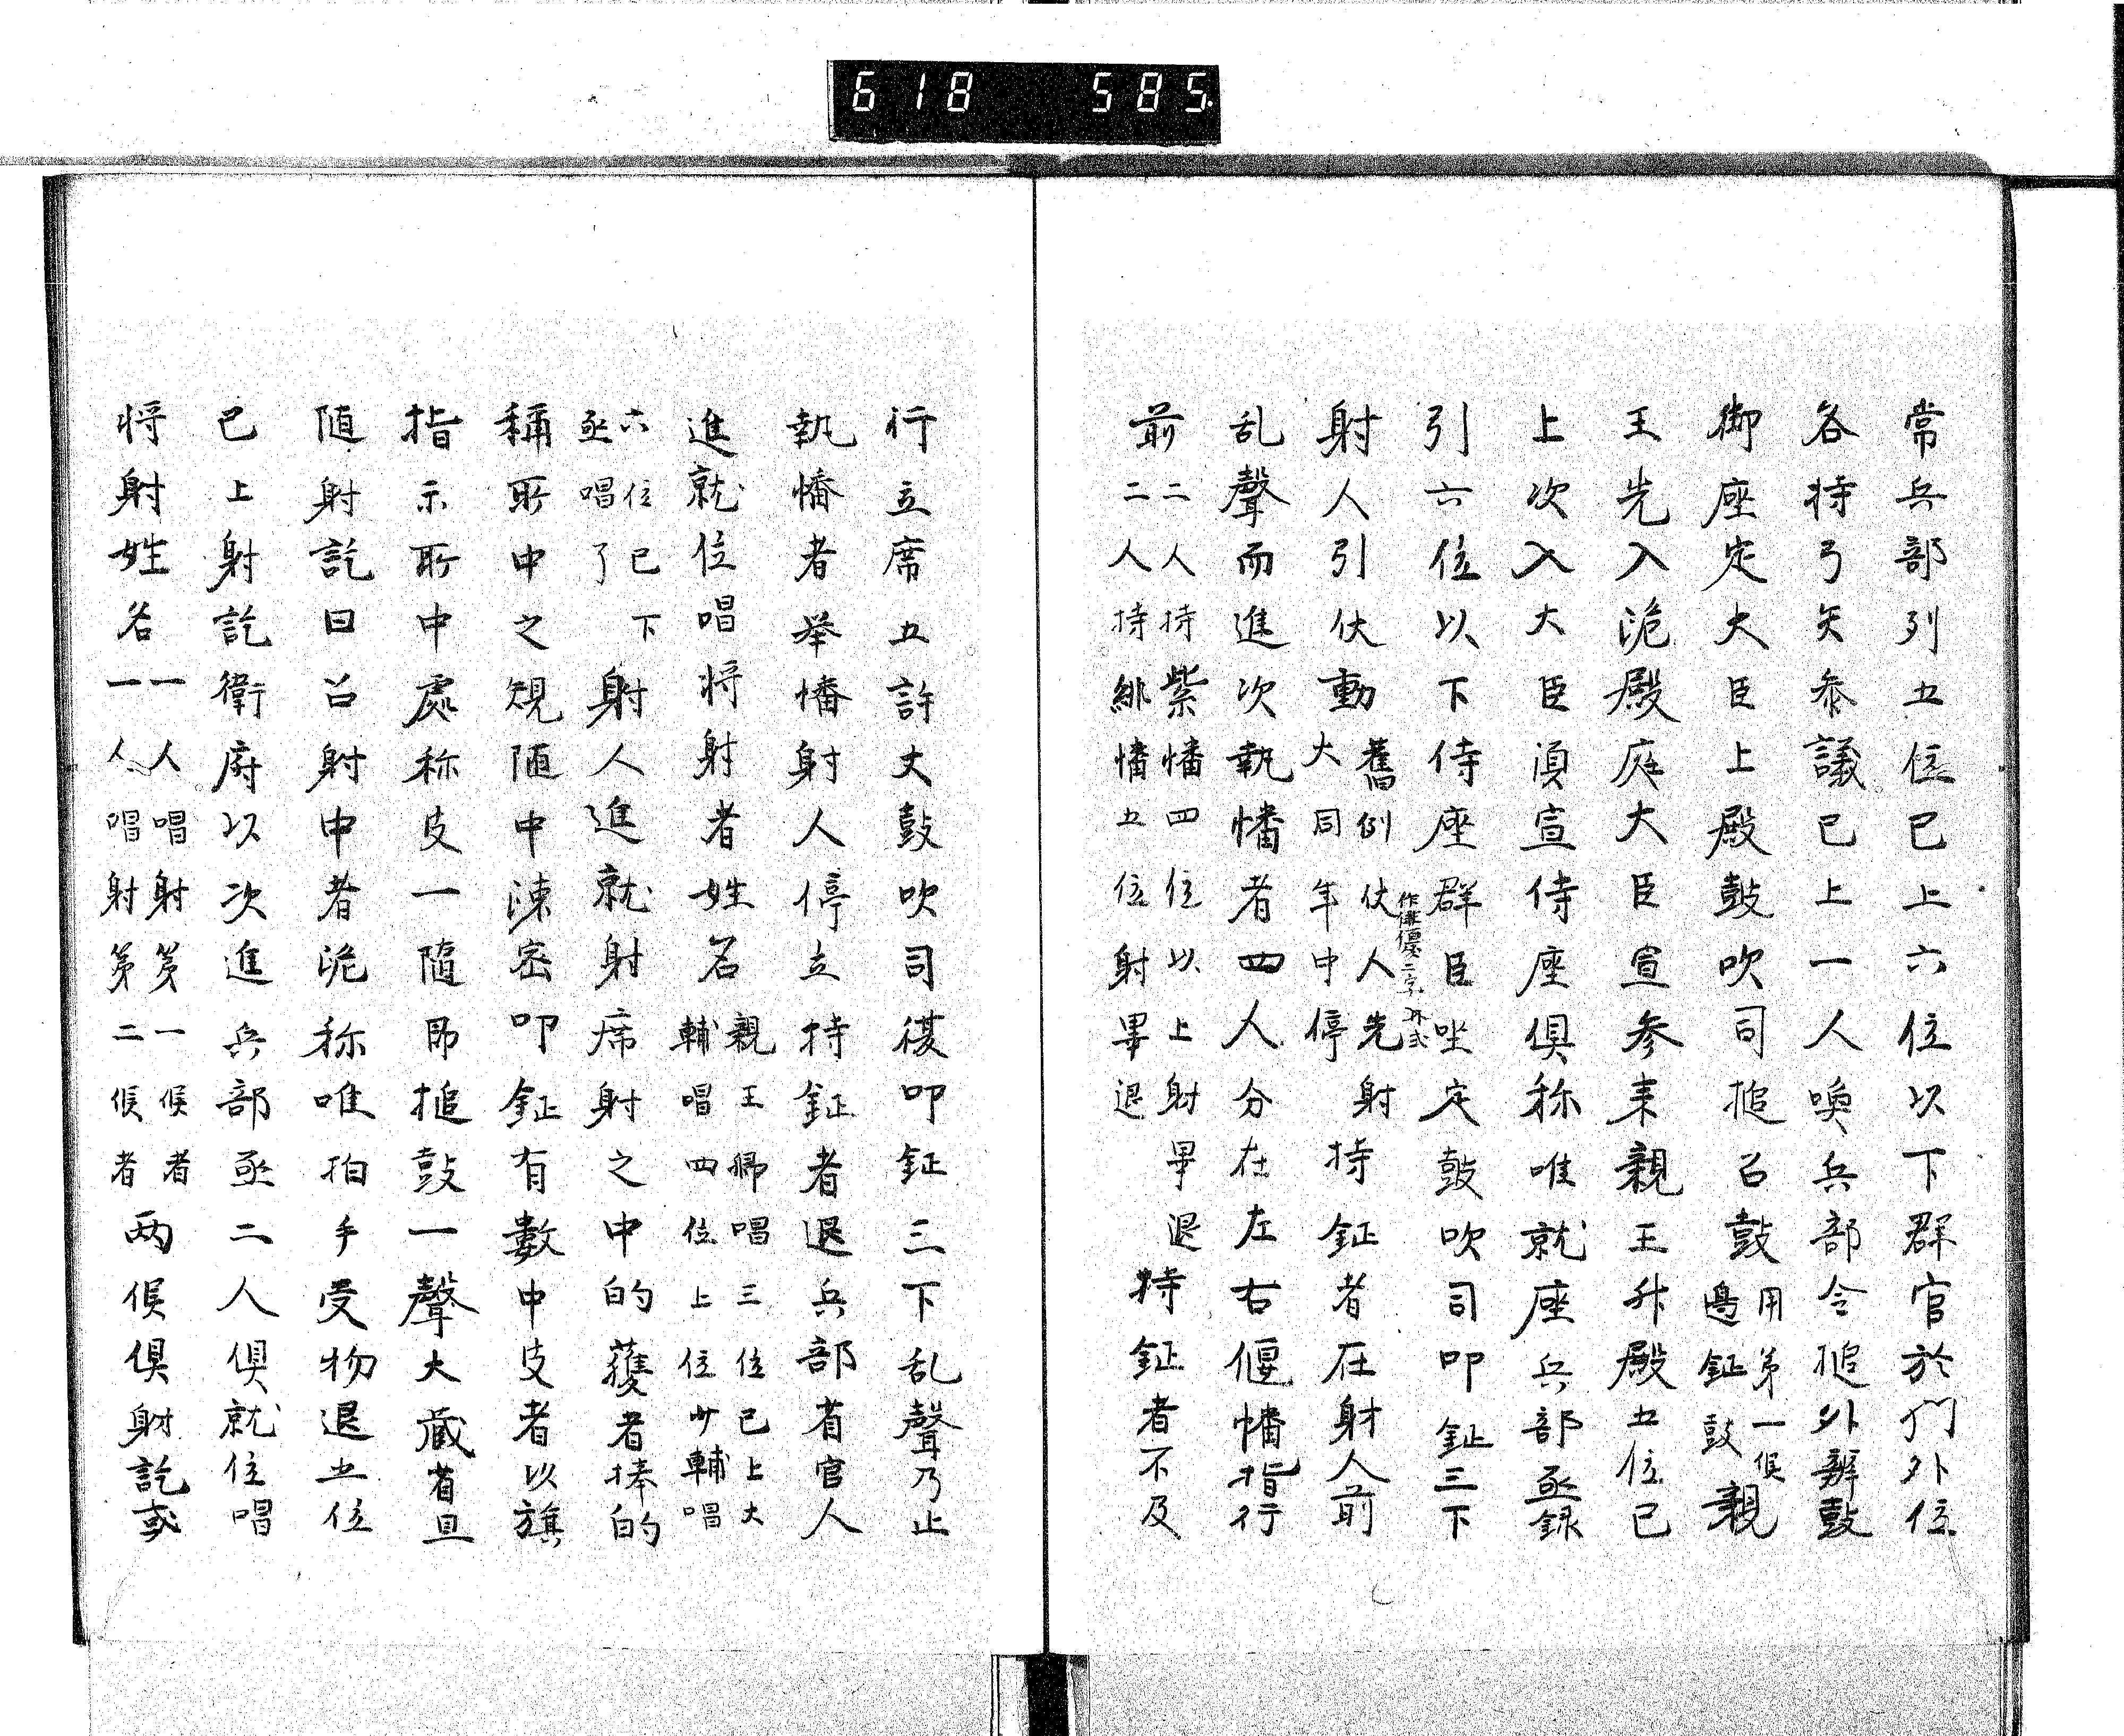 618 585
常兵部列五位已上六位以下群官於門外位
各持弓矢参議已上一人喚兵部令搥外辨鼓
御座定大臣上殿鼓吹司搥召鼓用第一侯
邊鉦鼓親
王先入㐌殿庭大臣宣参来親王升殿五位已
上次入大臣湏宣侍座俱称唯就座兵部丞録
引六位以下侍座群臣㘴定鼓吹司叩鉦三下
作儛優二字
射人引伏動舊例伏人先射
大同年中停持鉦者在射人前
乱聲而進次執幡者四人分在左右偃幡指行
前二人持紫幡四位以上射畢退
二人持緋幡五位射畢退持鉦者不及
行立席五許丈鼓吹司復叩鉦三下乱聲乃止
執幡者举幡射人停立持鉦者退兵部省官人
進就位唱将射者姓名親王卿唱三位已上大
輔唱四位上位少輔唱
六位已下
丞唱了射人進就射席射之中的獲者捧的
稱所中之規随中涑密叩鉦有數中皮者以旗
指示所中處称皮一隨即搥鼓一聲大蔵省且
随射訖曰召射中者㐌称唯拍手受物退五位
已上射訖衛府以次進兵部丞二人俱就位唱
将射姓名一人唱射第一侯者
一人唱射第二侯者两侯俱射訖或